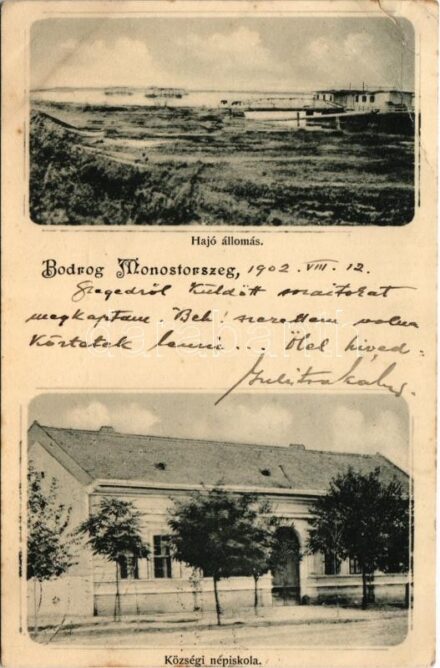 Hajó állomás.
Bodrog Monostorszeg, 1902. VIII. 12.
Szegedről küldött soraitokat
megkaptam. Beh' szerettem volna
köztetek lenni... Ölel hived
Községi népiskola.